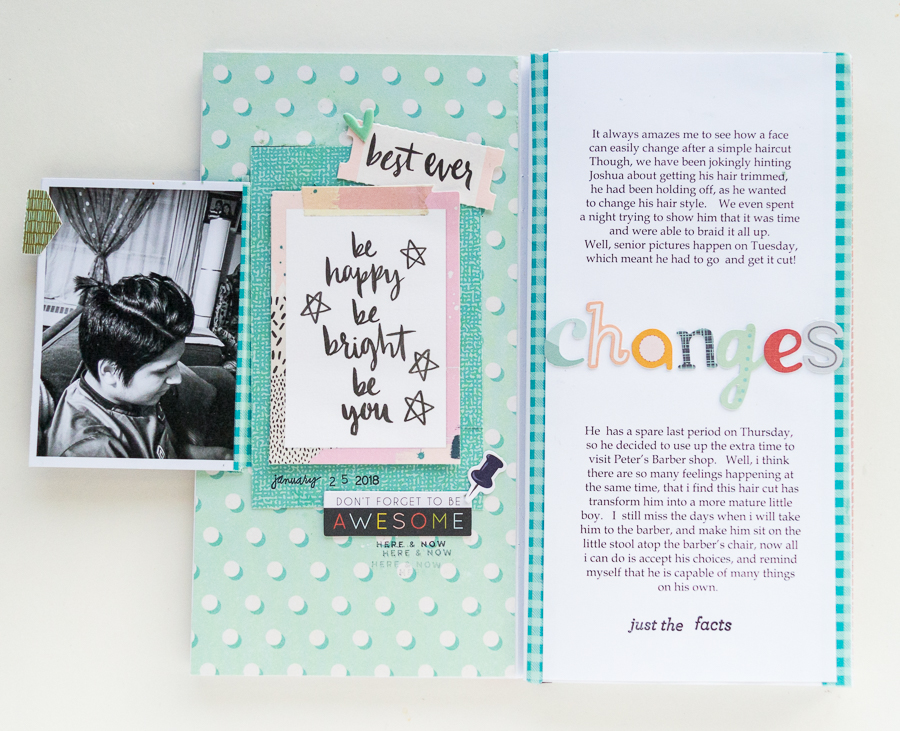 best ever
be
happy
be
bright
be
you
january 25 2018
DON'T FORGET TO BE
AWESOME
HERE & NOW
HERE & NOW
HERE & NOW
It always amazes me to see how a face
can easily change after a simple haircut
Though, we have been jokingly hinting
Joshua about getting his hair trimmed,
he had been holding off, as he wanted
to change his hair style. We even spent
a night trying to show him that it was time
and were able to braid it all up.
Well, senior pictures happen on Tuesday,
which meant he had to go and get it cut!
changes
He has a spare last period on Thursday,
so he decided to use up the extra time to
visit Peter's Barber shop. Well, i think
there are so many feelings happening at
the same time, that i find this hair cut has
transform him into a more mature little
boy. I still miss the days when i will take
him to the barber, and make him sit on the
little stool atop the barber's chair, now all
i can do is accept his choices, and remind
myself that he is capable of many things
on his own.
just the facts